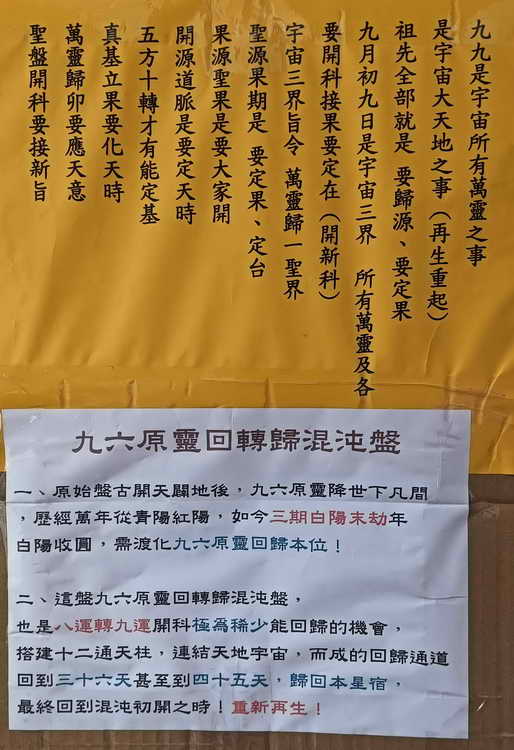 九九是宇宙所有萬靈之事
是宇宙大天地之事（再生重起）
祖先全部就是 要歸源、要定果
九月初九日是宇宙三界 所有萬靈及各
要開科接果要定在（開新科）
宇宙三界旨令 萬靈歸一聖界
聖源果期是 要定果、定台
果源聖果是要大家開
開源道脈是要定天時
五方十轉才有能定基
真基立果要化天時
萬靈歸卯要應天意
聖盤開科要接新旨
九六原靈回轉歸混沌盤
一、原始盤古開天闢地後，九六原靈降世下凡間
，歷經萬年從青陽紅陽，如今三期白陽末劫年
白陽收圓，需渡化九六原靈回歸本位！
二、這盤九六原靈回轉歸混沌盤，
也是八運轉九運開科極為稀少能回歸的機會，
搭建十二通天柱，連結天地宇宙，而成的回歸通道
回到三十六天甚至到四十五天，歸回本星宿，
最終回到混沌初開之時！重新再生！